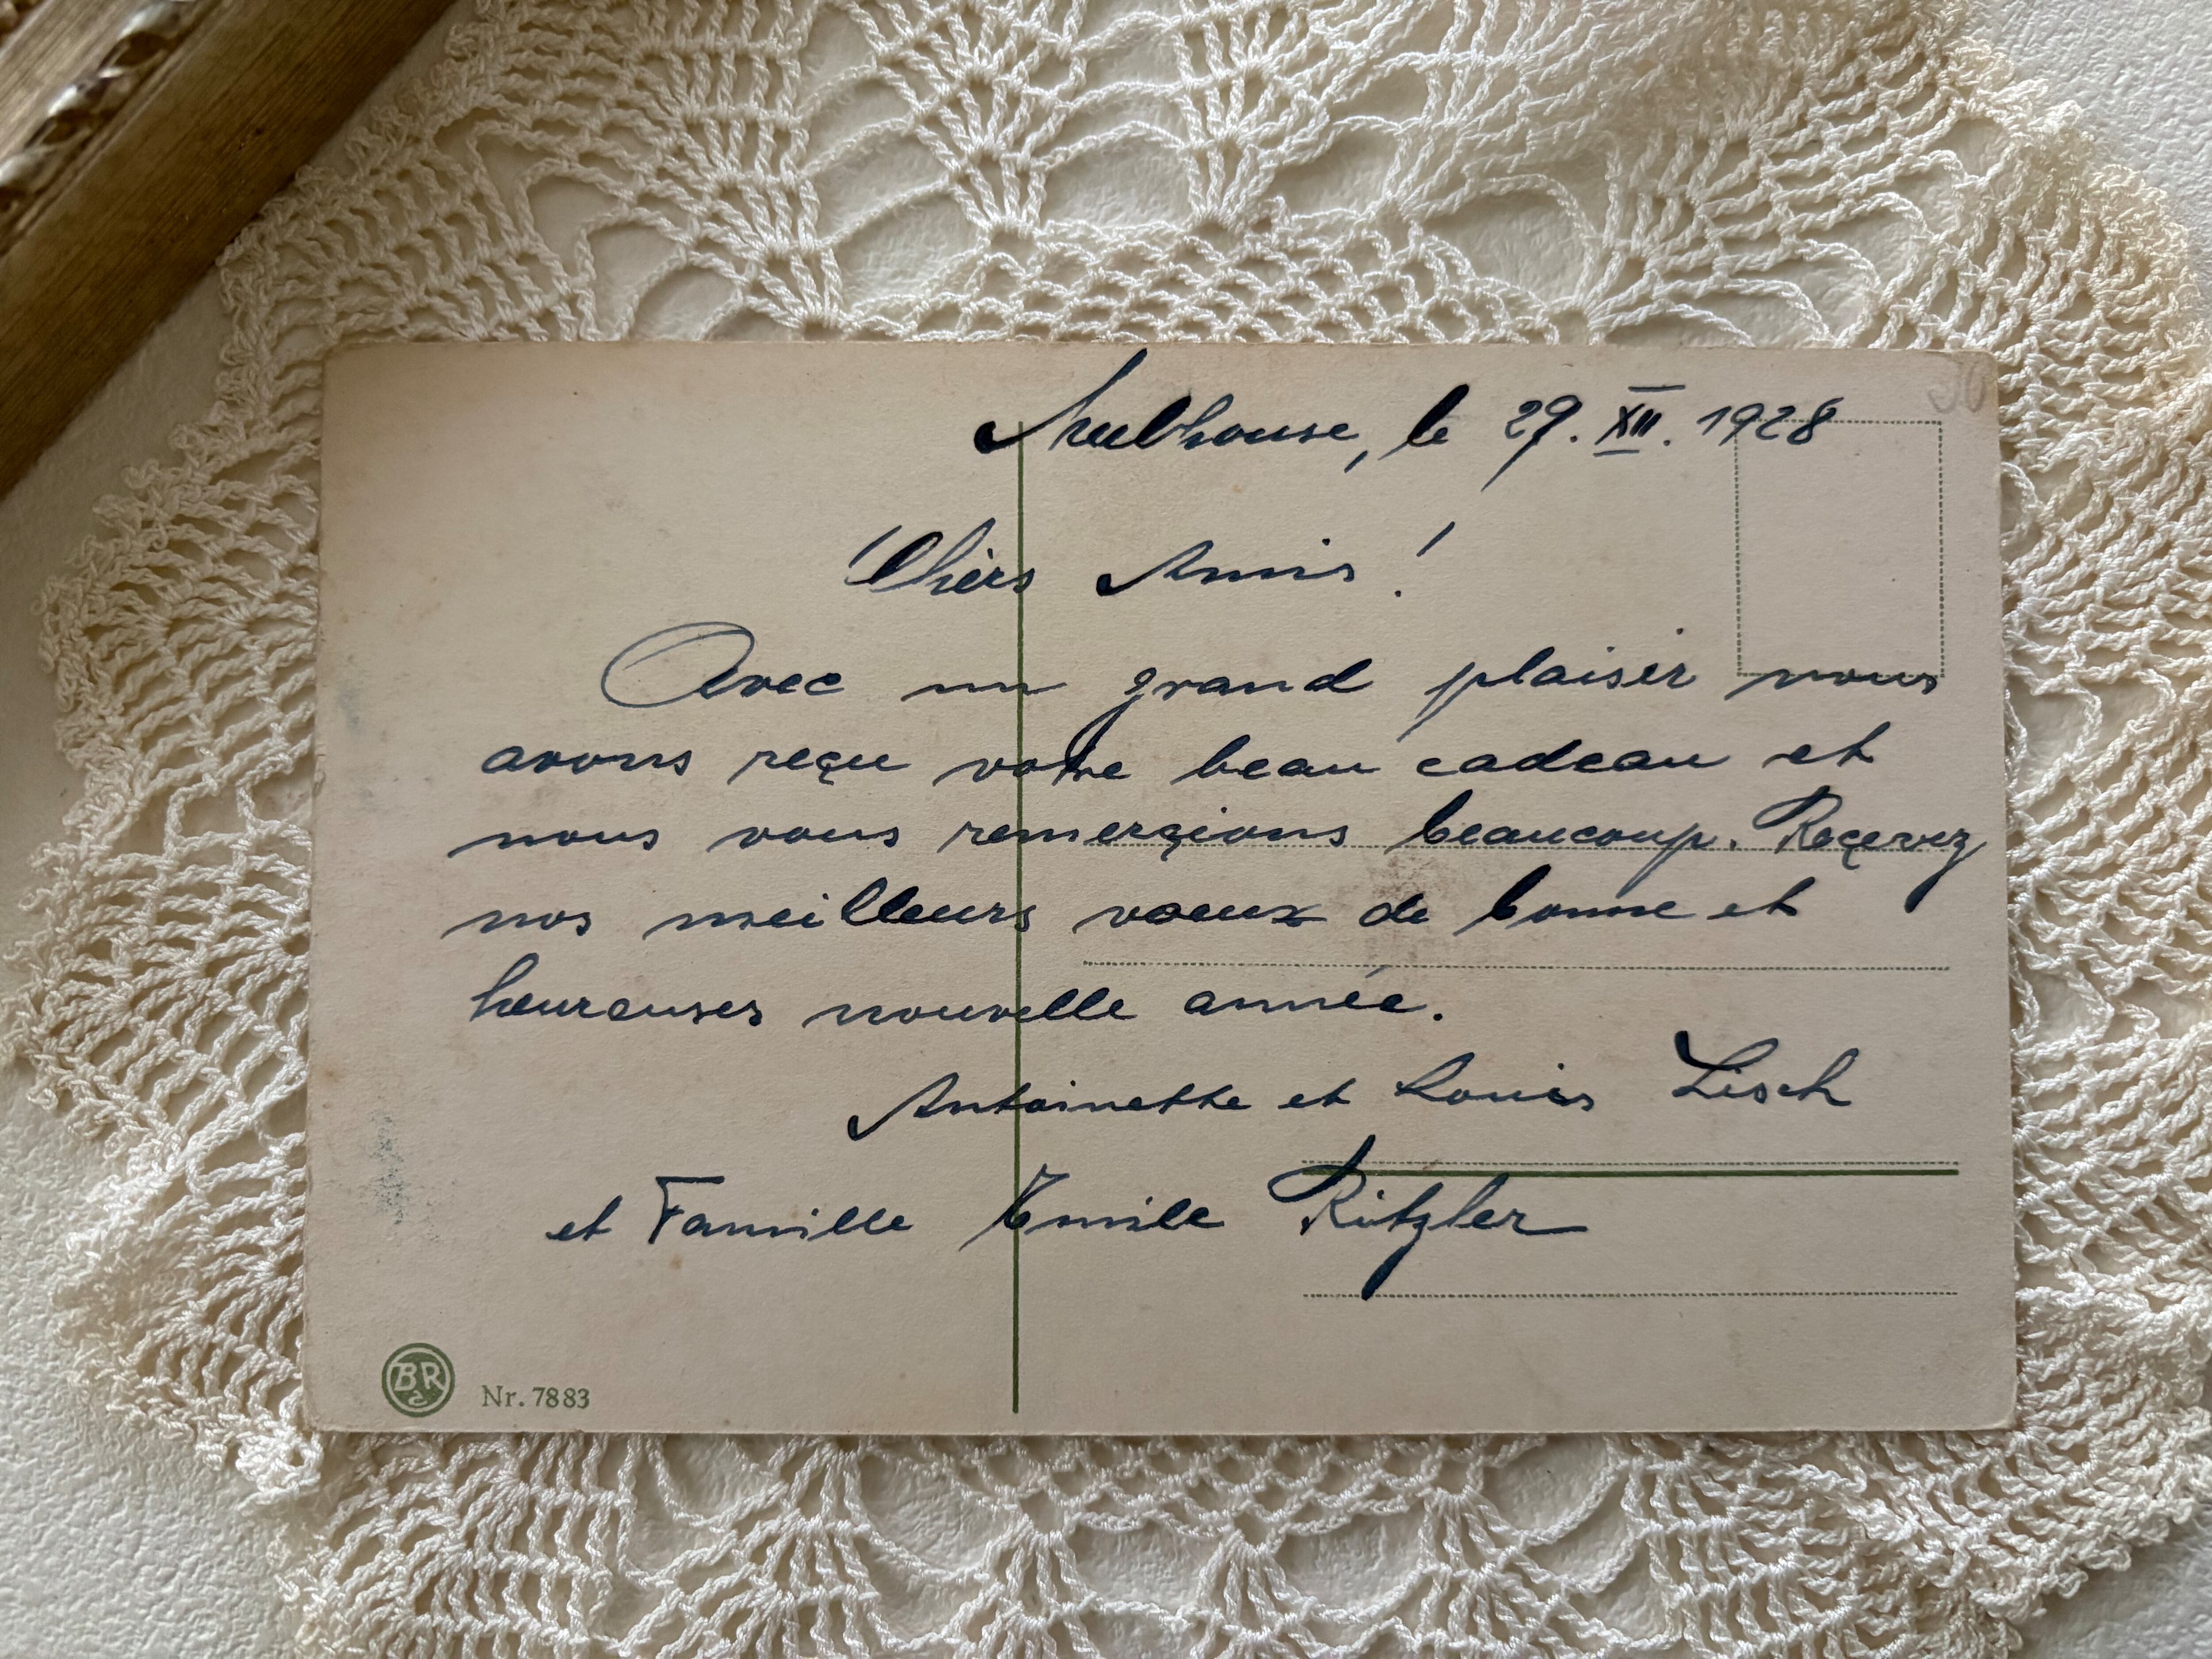 Mulhouse, le 29. XII. 1928
Chèrs Amis!
Avec un grand plaisir nous
avons reçu votre beau cadeau et
nous vous remerçions beaucoup. Reçevez
nos meilleurs voeux de bonne et
heureuses nouvelle année.
Antoinette et Louis Lisch
et Famille Emile Ritzler
BR
Nr. 7883